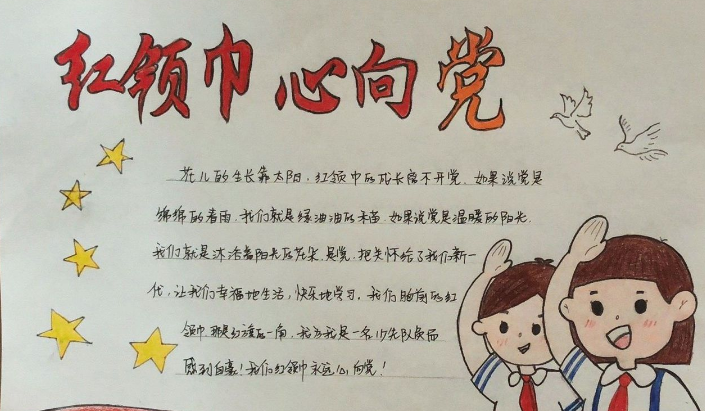 红领巾心向党
花儿的生长靠太阳,红领巾的成长离不开党,如果说党是
绵绵的春雨,我们就是绿油油的禾苗,如果说党是温暖的阳光,
我们就是沐浴着阳光的花朵,是党,把关怀给了我们新一
代,让我们幸福地生活,快乐地学习,我们胸前的红
领巾,那是红旗的一角,我为我是一名少先队员而
感到自豪!我们红领巾永远心向党!